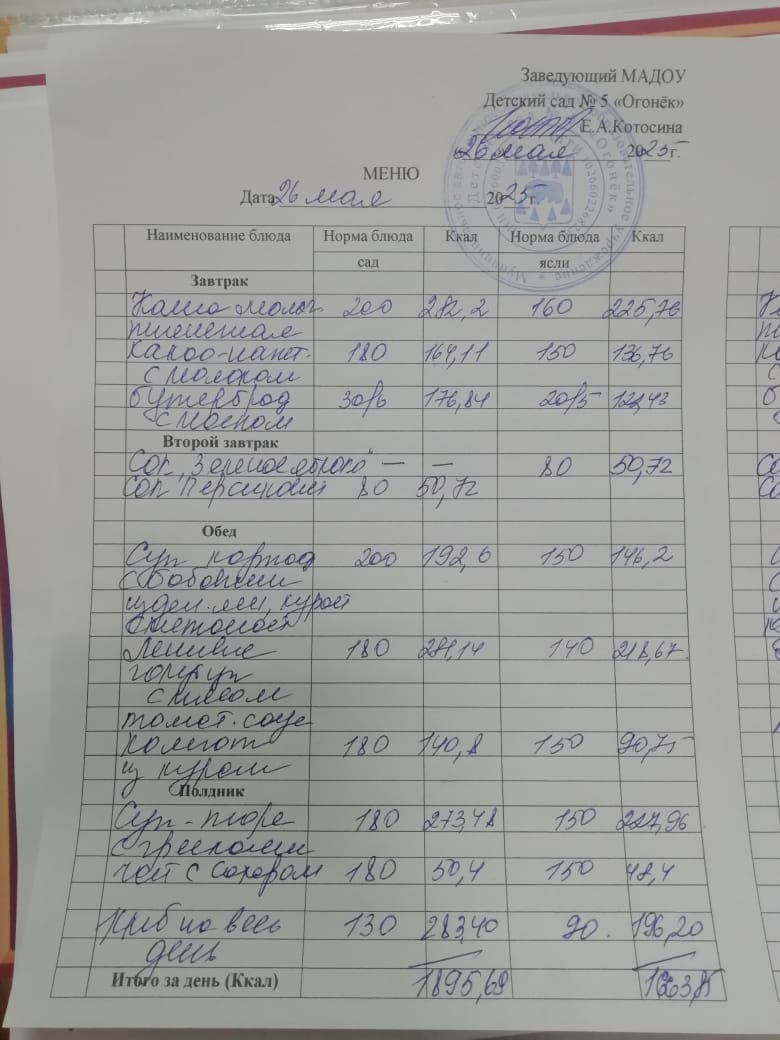 Заведующий МАДОУ
Детский сад № 5 «Огонёк»
Е.А.Котосина
«26» мая 2025 г.
МЕНЮ
Дата 26 мая 2025 г.
Наименование блюда Норма блюда Ккал Норма блюда Ккал
сад ясли
Завтрак
Каша молоч. 200 282,2 160 225,76
пшенная
какао-напит. 180 164,11 150 136,76
с молоком
бутерброд 30/6 176,84 20/5 123,43
с маслом
Второй завтрак
Сок "Зеленое яблоко" — — 80 50,72
Сок "Персиковый 80 50,72
Обед
Суп картоф 200 192,6 150 146,2
с бобовыми
сметаной
Ленивые 180 281,14 140 218,67
голубцы
с мясом
томат. соус
Компот 180 140,8 150 90,75
из кураги
Полдник
Суп-пюре 180 273,48 150 227,96
с гренками
чай с сахаром 180 50,4 150 48,4
Хлеб на весь 130 283,40 90. 196,20
день
Итого за день (Ккал) 1895,69